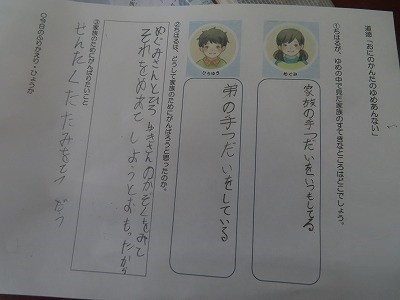 道徳「おにのかんたのゆめあんない」
①ちはるが、ゆめの中で見た家族のすてきなところはどこでしょう。
めぐみ
家族の手つだいをいつもしてる
ひろゆき
弟の手つだいをしている
②ちはるは、どうして家族のためにがんばろうと思ったのか。
めぐみさんとひろゆきさんのかぞくをみて
それをめあてしようとおも。だから
③家族のためにがんばりたいこと
せんたくたたみをてつだう
○今日のふりかえり・ひょうか